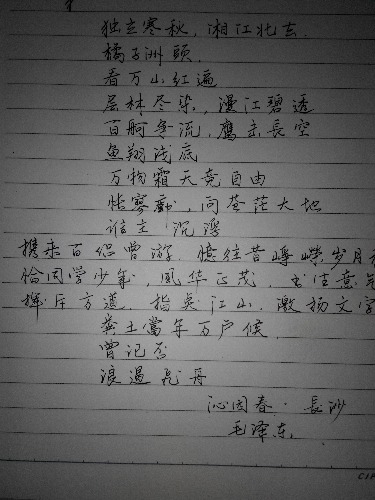 独立寒秋,湘江北去.
橘子洲頭.
看万山红遍
层林尽染,漫江碧透
百舸争流,鹰击長空
鱼翔浅底
万物霜天竞自由
怅寥廓,问苍茫大地
谁主沉浮
携来百侣曾游.憶往昔峥嵘岁月
恰同学少年,風华正茂,书生意气
挥斥方遒.指点江山.激扬文字
粪土當年万户侯.
曾记否
浪遏飞舟
沁园春·長沙
毛泽东.